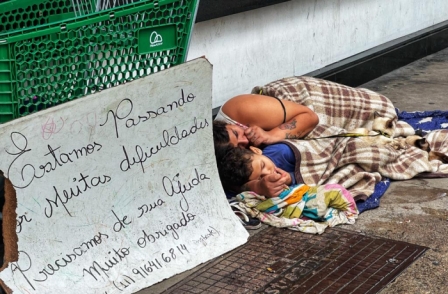 Estamos Passando
por Muitas dificuldades
Precisamos de sua Ajuda
Muito obrigado
(11) 916416814